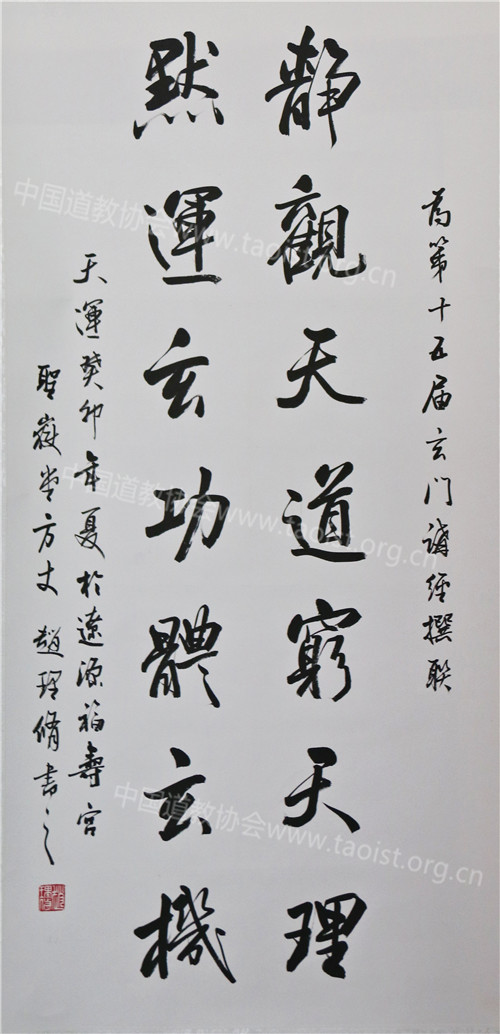 为第十五届玄门讲经撰联
靜觀天道窮天理
默運玄功體玄機
天運癸卯年夏於遼源福壽宮
聖嶽堂方丈趙理脩書之
中国道教协会www.taoist.org.cn
中国道教协会www.taoist.org.cn
中国道教协会www.taoist.org.cn